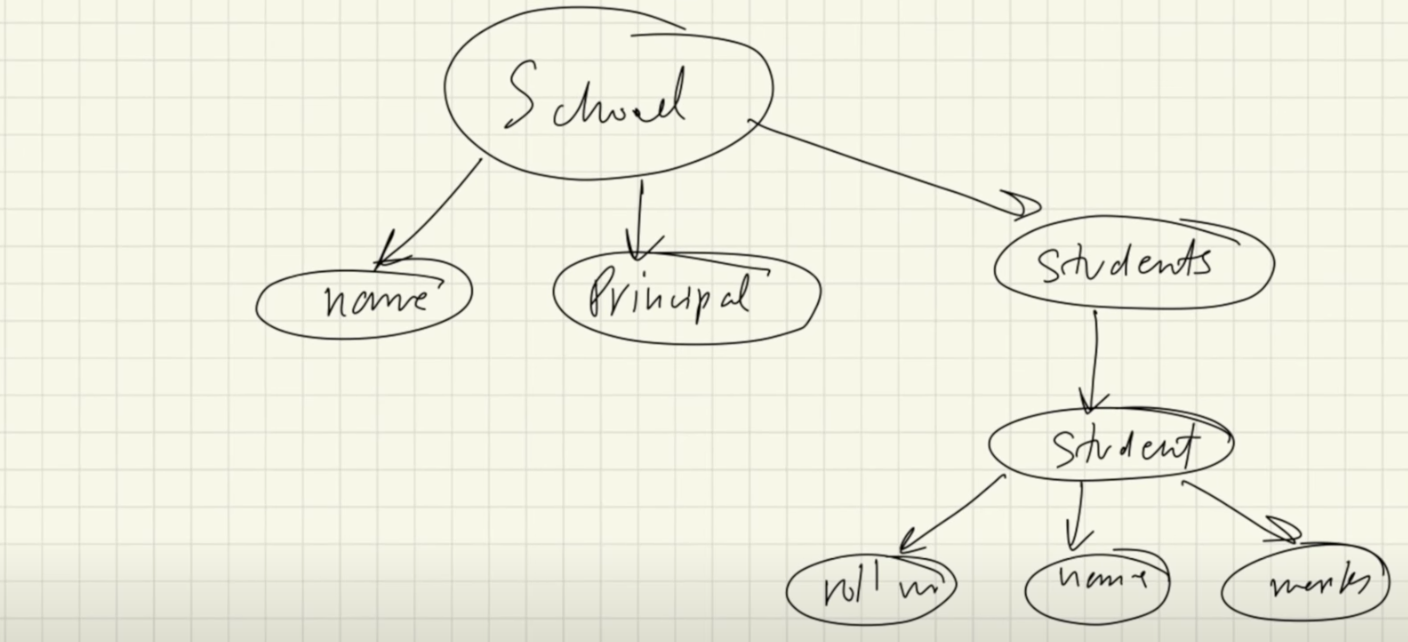 School
name
Principal
Students
Student
roll no
name
marks